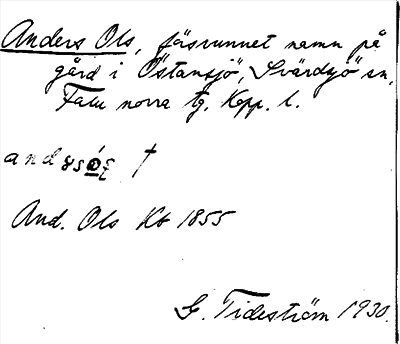 Anders Ols, försvunnet namn på
gård i Östansjö, Svärdsjö sn,
Falu norra tg. Kopp. l.
†
And. Ols Kb 1855
G. Tideström 1930.